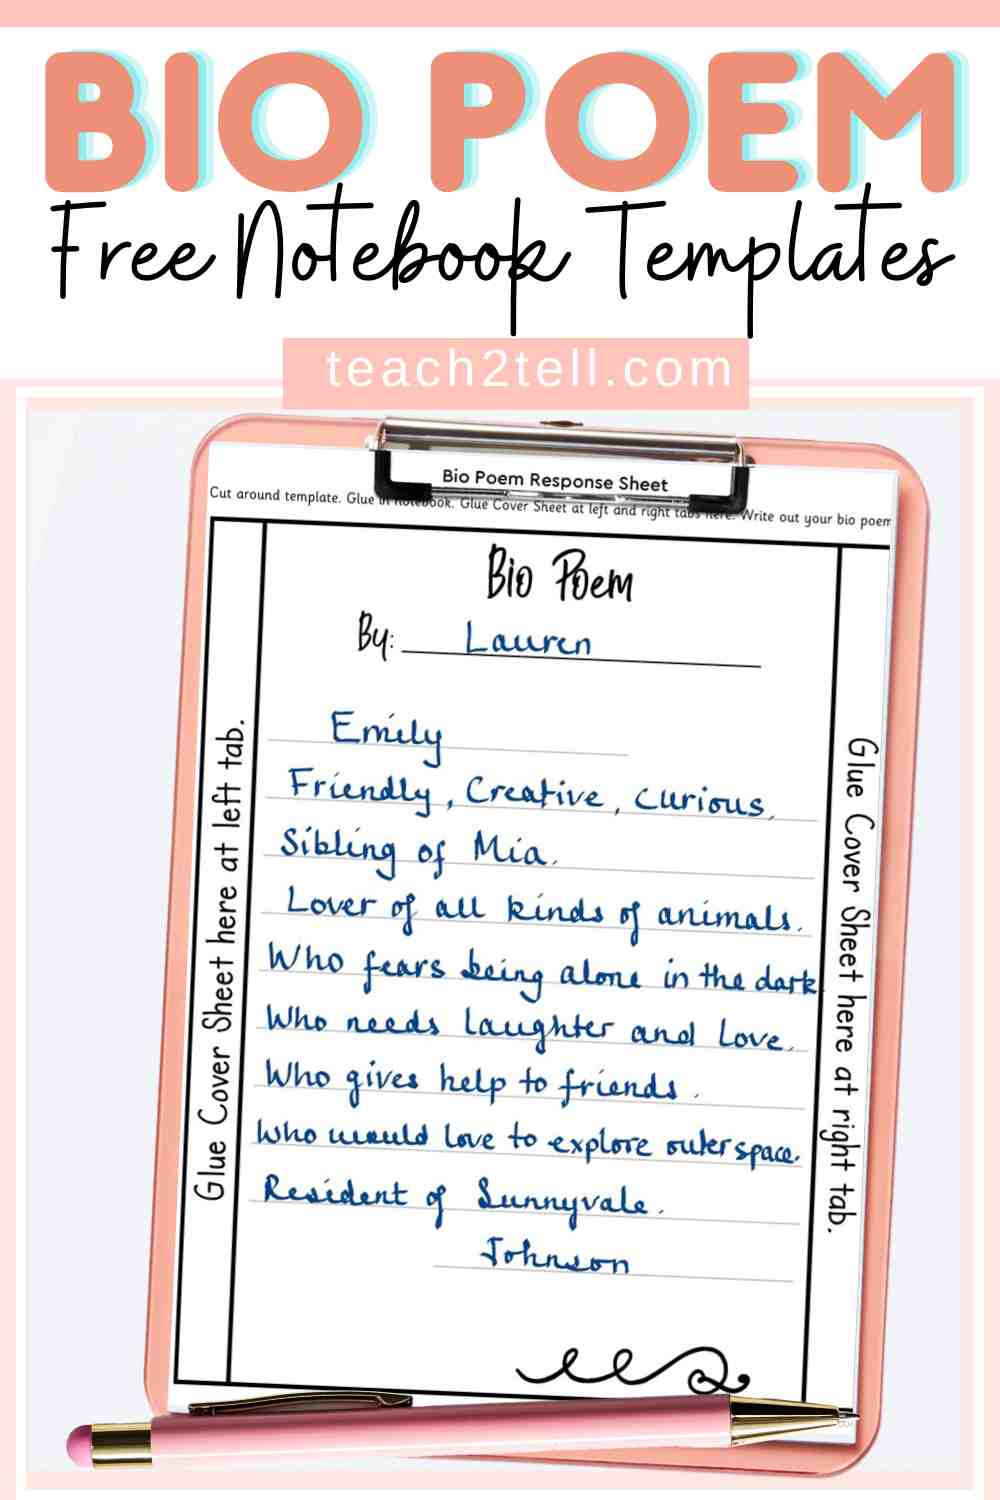 BIO POEM
Free Notebook Templates
teach2tell.com
Bio Poem Response Sheet
Cut around template. Glue in notebook. Glue Cover Sheet at left and right tabs here. Write out your bio poem
Bio Poem
By: Lauren
Emily
Friendly, Creative, curious.
Sibling of Mia.
Lover of all kinds of animals.
Who fears being alone in the dark
Who needs laughter and love.
Who gives help to friends.
Who would love to explore outer space.
Resident of Sunnyvale.
Johnson
Glue Cover Sheet here at left tab.
Glue Cover Sheet here at right tab.